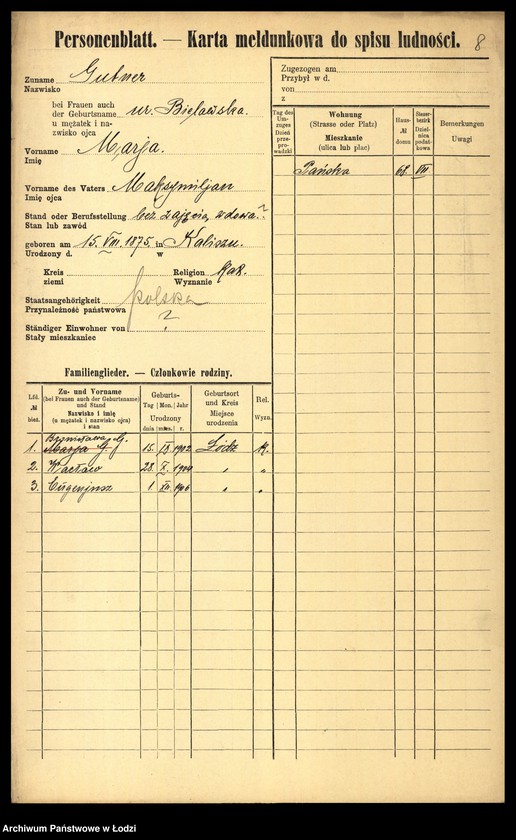 Personenblatt. — Karta meldunkowa do spisu ludności. 8
Zuname Gutner
Nazwisko
bei Frauen auch
der Geburtsname ur. Bielawska.
u mężatek i na-
zwisko ojca
Vorname Marja.
Imię
Vorname des Vaters Maksymiljan
Imię ojca
Stand oder Berufsstellung bez zajęcia, wdowa ?
Stan lub zawód
geboren am 15. VIII. 1875. in Kaliszu.
Urodzony d. w
Kreis Religion Kat.
ziemi Wyznanie
Staatsangehörigkeit polska
Przynależność państwowa
Ständiger Einwohner von ?
Stały mieszkaniec
Zugezogen am
Przybył w d.
von
z
Tag des Um-zuges Dzień prze-pro-wadzki
Wohnung
(Strasse oder Platz)
Mieszkanie
(ulica lub plac)
Haus-
№
domu
Steuer-bezirk Dziel-nica podat-kowa
Bemerkungen
Uwagi
Pańska 68. VII.
Familienglieder. — Członkowie rodziny.
Lfd.
№
bież.
Zu- und Vorname
(bei Frauen auch der Geburtsname)
und Stand
Nazwisko i imię
(u mężatek i nazwisko ojca)
i stan
Geburts-
Tag Mon. Jahr
Urodzony
dnia mies. r.
Geburtsort
und Kreis
Miejsce
urodzenia
Rel.
Wyzn.
Bronisława G.
1. Marja G. 15. IX 1902 Łódź K.
2. Wacław 28. X. 1904 " "
3. Eugenjusz 1. XII. 1906 " "
Archiwum Państwowe w Łodzi